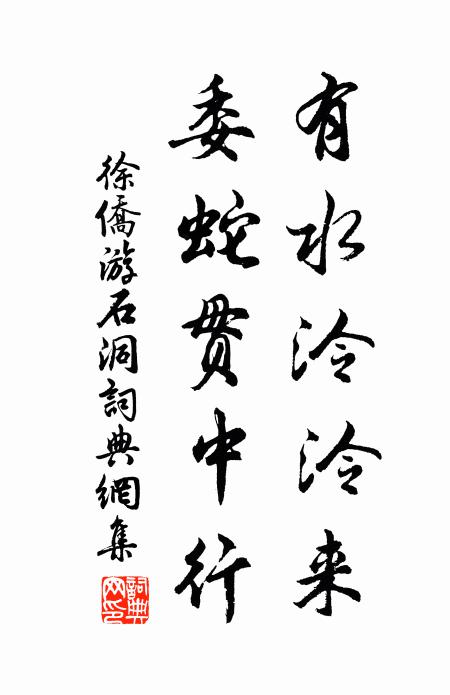 有水泠泠来
委蛇贯中行
徐僑游石洞詞典網集
詞典网印